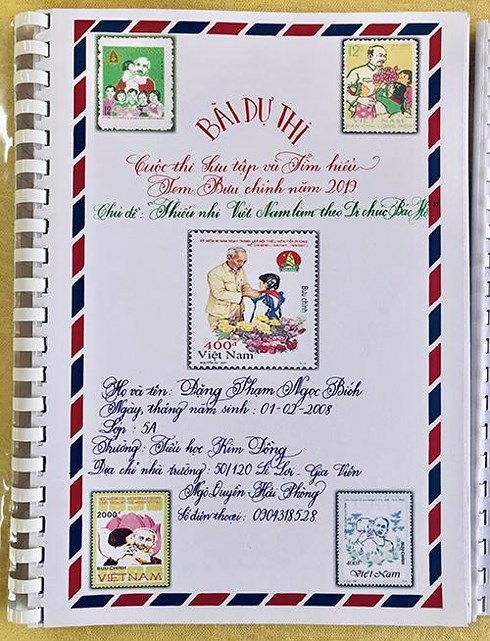 12
12xu
VIỆT NAM
BÀI DỰ THI
Cuộc thi Sưu tập và Tìm hiểu
Tem Bưu chính năm 2019
Chủ đề: "Thiếu nhi Việt Nam làm theo Di chúc Bác Hồ"
Bưu chính
400đ
Việt Nam
Họ và tên: Đặng Phạm Ngọc Bích
Ngày, tháng năm sinh: 01-02-2008
Lớp: 5A
Trường: Tiểu học Kim Đồng
Địa chỉ nhà trường: 50/120 Lê Lợi - Gia Viên
Ngô Quyền Hải Phòng
Số điện thoại: 0904318528
2000đ
BƯU CHÍNH
VIETNAM
400đ
Việt Nam